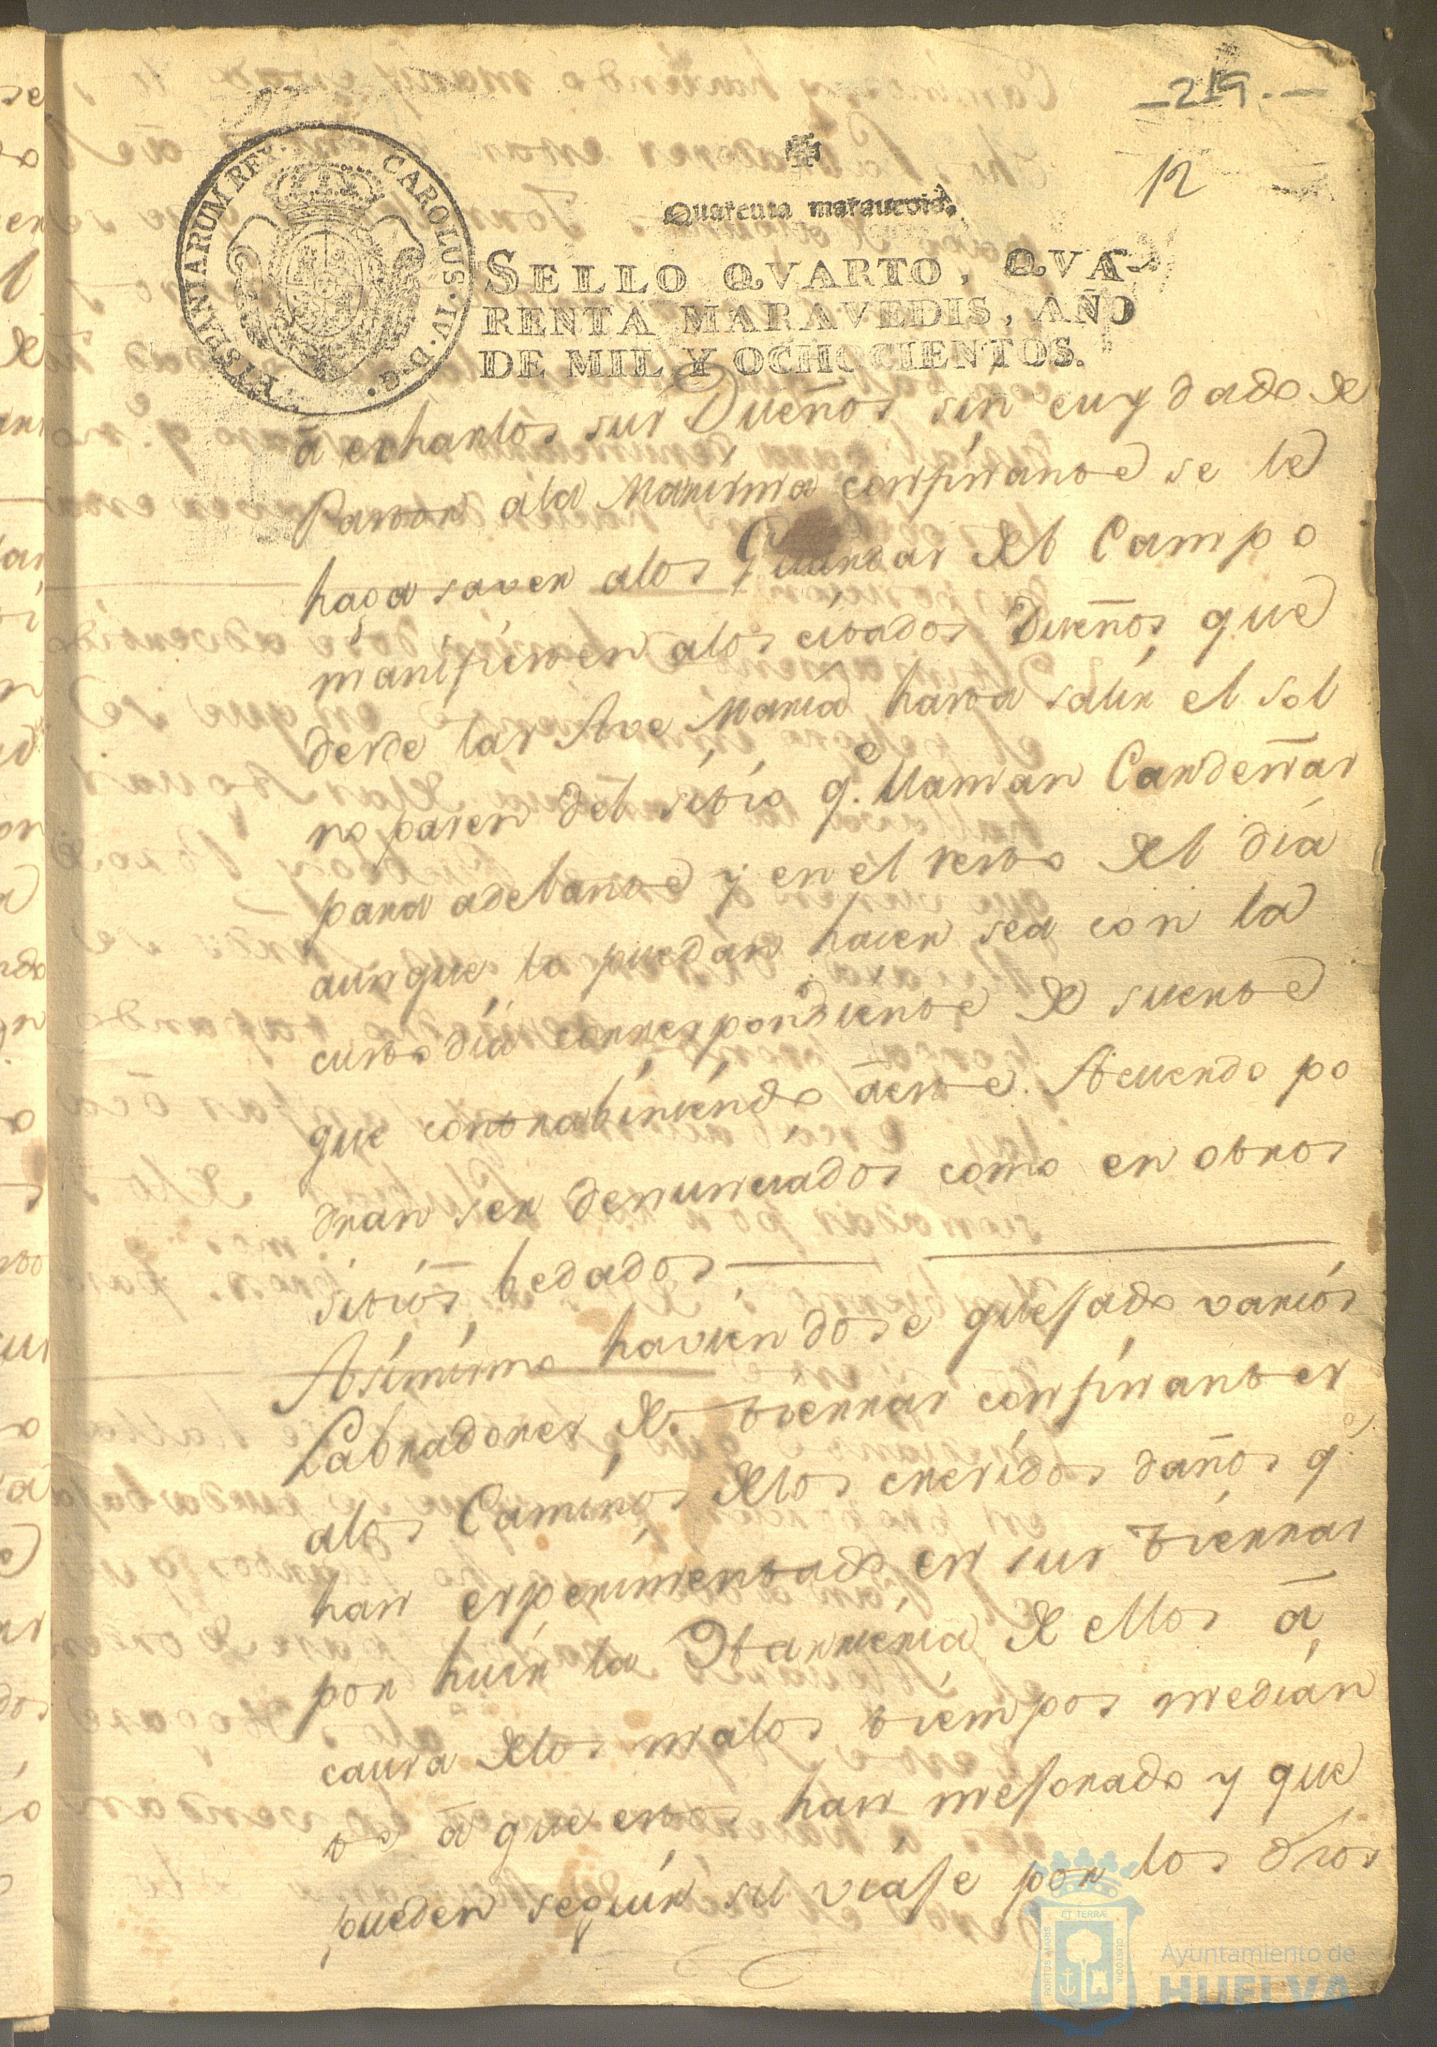 -219.-
12
Quarenta maravedis.
CAROLUS·IV·D·G·HISPANIARUM REX·
SELLO QVARTO, QVA-
RENTA MARAVEDIS, AÑO
DE MIL Y OCHOCIENTOS.
á echarlos sus Dueños sin cuydado de
Pastor ala Marisma confinante se le
haga saver alos Guardas del Campo
manifiesten alos citados Dueños, que
desde las Ave Maria hasta salir el sol
no pasen del sitio q.e llaman Cardeñas
para adelante y en el resto del dia
aunque lo puedan hacer sea con la
custodia correspondiente de suerte
que contrabiniendo áeste Acuerdo po
dran ser denunciados como en otros
sitios bedados
Asimismo haviendose quejado varios
Labradores de tierras confinantes
alos Caminos delos crecidos daños q.e
han experimentado en sus tierras
por huir la Harrieria de ellos á
causa delos malos tiempos median
te á que estos han mejorado y que
pueden seguir su viaje por los dros
PORTUS MARIS ET TERRAE CUSTODIA
Ayuntamiento de
HUELVA